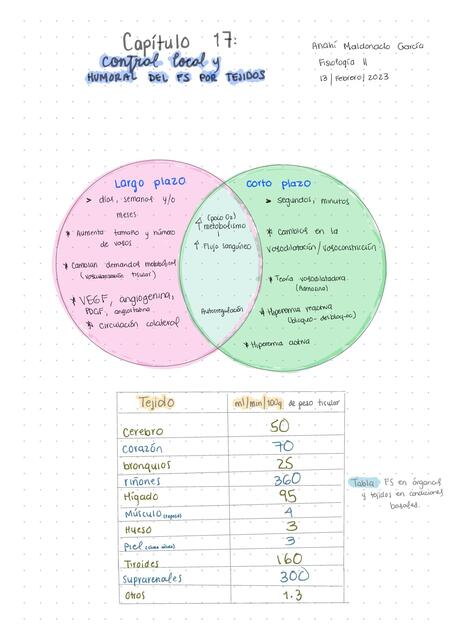 Capítulo 17:
control local y
HUMORAL DEL FS POR TEJIDOS
Anahí Maldonado García
Fisiología II
13/febrero/2023
Largo plazo
> días, semanas y/o
meses
* Aumenta tamaño y número
de vasos
* Cambian demandas metabólicas
(vascularización tisular)
* VEGF, angiogenina,
PDGF, angiostatina
* Circulación colateral
↑ (poco O₂)
metabolismo
↑ Flujo sanguíneo
Autorregulación
corto plazo
> segundos, minutos
* Cambios en la
vasodilatación/vasoconstricción
* Teoría vasodilatadora
* Hiperemia reactiva
(bloqueo-desbloqueo)
* Hiperemia activa
Tejido ml/min/100g de peso tisular
Cerebro 50
corazón 70
bronquios 25
riñones 360
Hígado 95
Músculo (reposo) 4
Hueso 3
Piel 3
Tiroides 160
Suprarrenales 300
otros 1.3
Tabla FS en órganos
y tejidos en condiciones
basales.